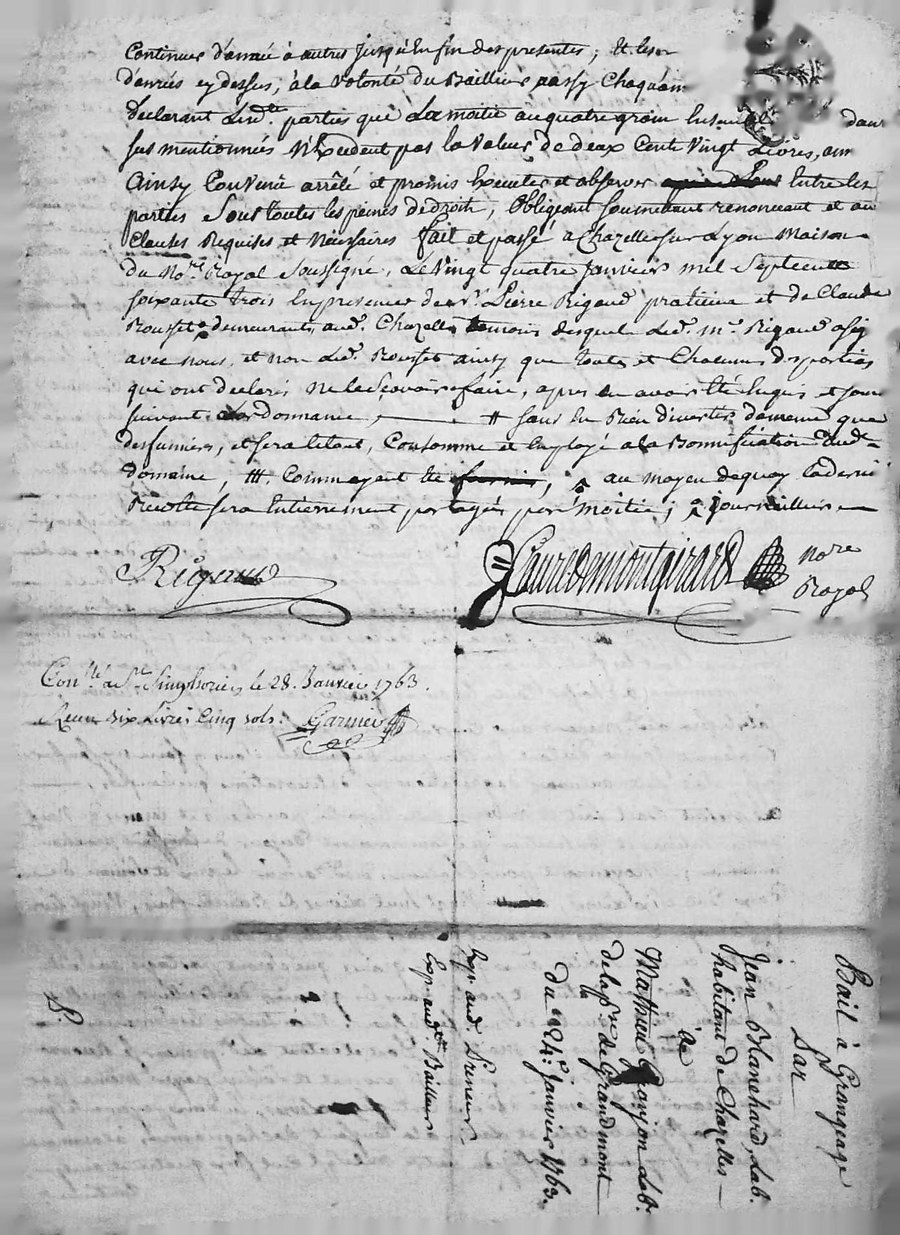 Continuer d'année à autres jusqu'en fin des presentes; Et les
denrées cy dessus, à la volonté du Bailleur
Declarant Lesd. parties que La moitié au quatre grain
sus mentionnés N'Excedent pas la valeur de deux Cents Vingt Livres,
Ainsy Convenu arrêté et promis Executer et observer Entre les
parties Sous toutes les peines de droit, Obligeant soumettant renoncant et
Clauses Requises et Nécessaires fait et passé à Chazelle sur Lyon Maison
du No.re Royal soussigné, Le vingt quatre Janvier mil Septcent
soixante trois En presence de Sr. Pierre Rigaud praticien et de Claude
Rousset demeurants aud. Chazelles temoins desquels Led. mr. Rigaud a sig
avec nous, et non Led. Rousset ainsy que toutes et Chacunes des parties
qui ont declaré ne le sçavoir faire, apres en avoir Eté Enquis et
suivant Lordonnance, # sans En Rien divertir de meme que
des fumiers, et sera le tout, Consommé et Employé a la Bonnification dud.
domaine, ### Commençant Et au moyen dequoy la derniere
Recolte sera Entierrement partagée par Moitié,
Rigaud
Lauredemontgirard nore
Royal
Con.lé à St. Simphorien le 28. Janvier 1763.
Recu six Livres Cinq sols. Garnier
Bail à Grangeage
Par
Jean Blanchard, Lab.
habitant de Chazelles
à
Mathieu Granjon Lab.
de la p.sse de Grandmont
du 24. Janvier 1763.
Exp. aud. Preneur
Exp. aud. Bailleur